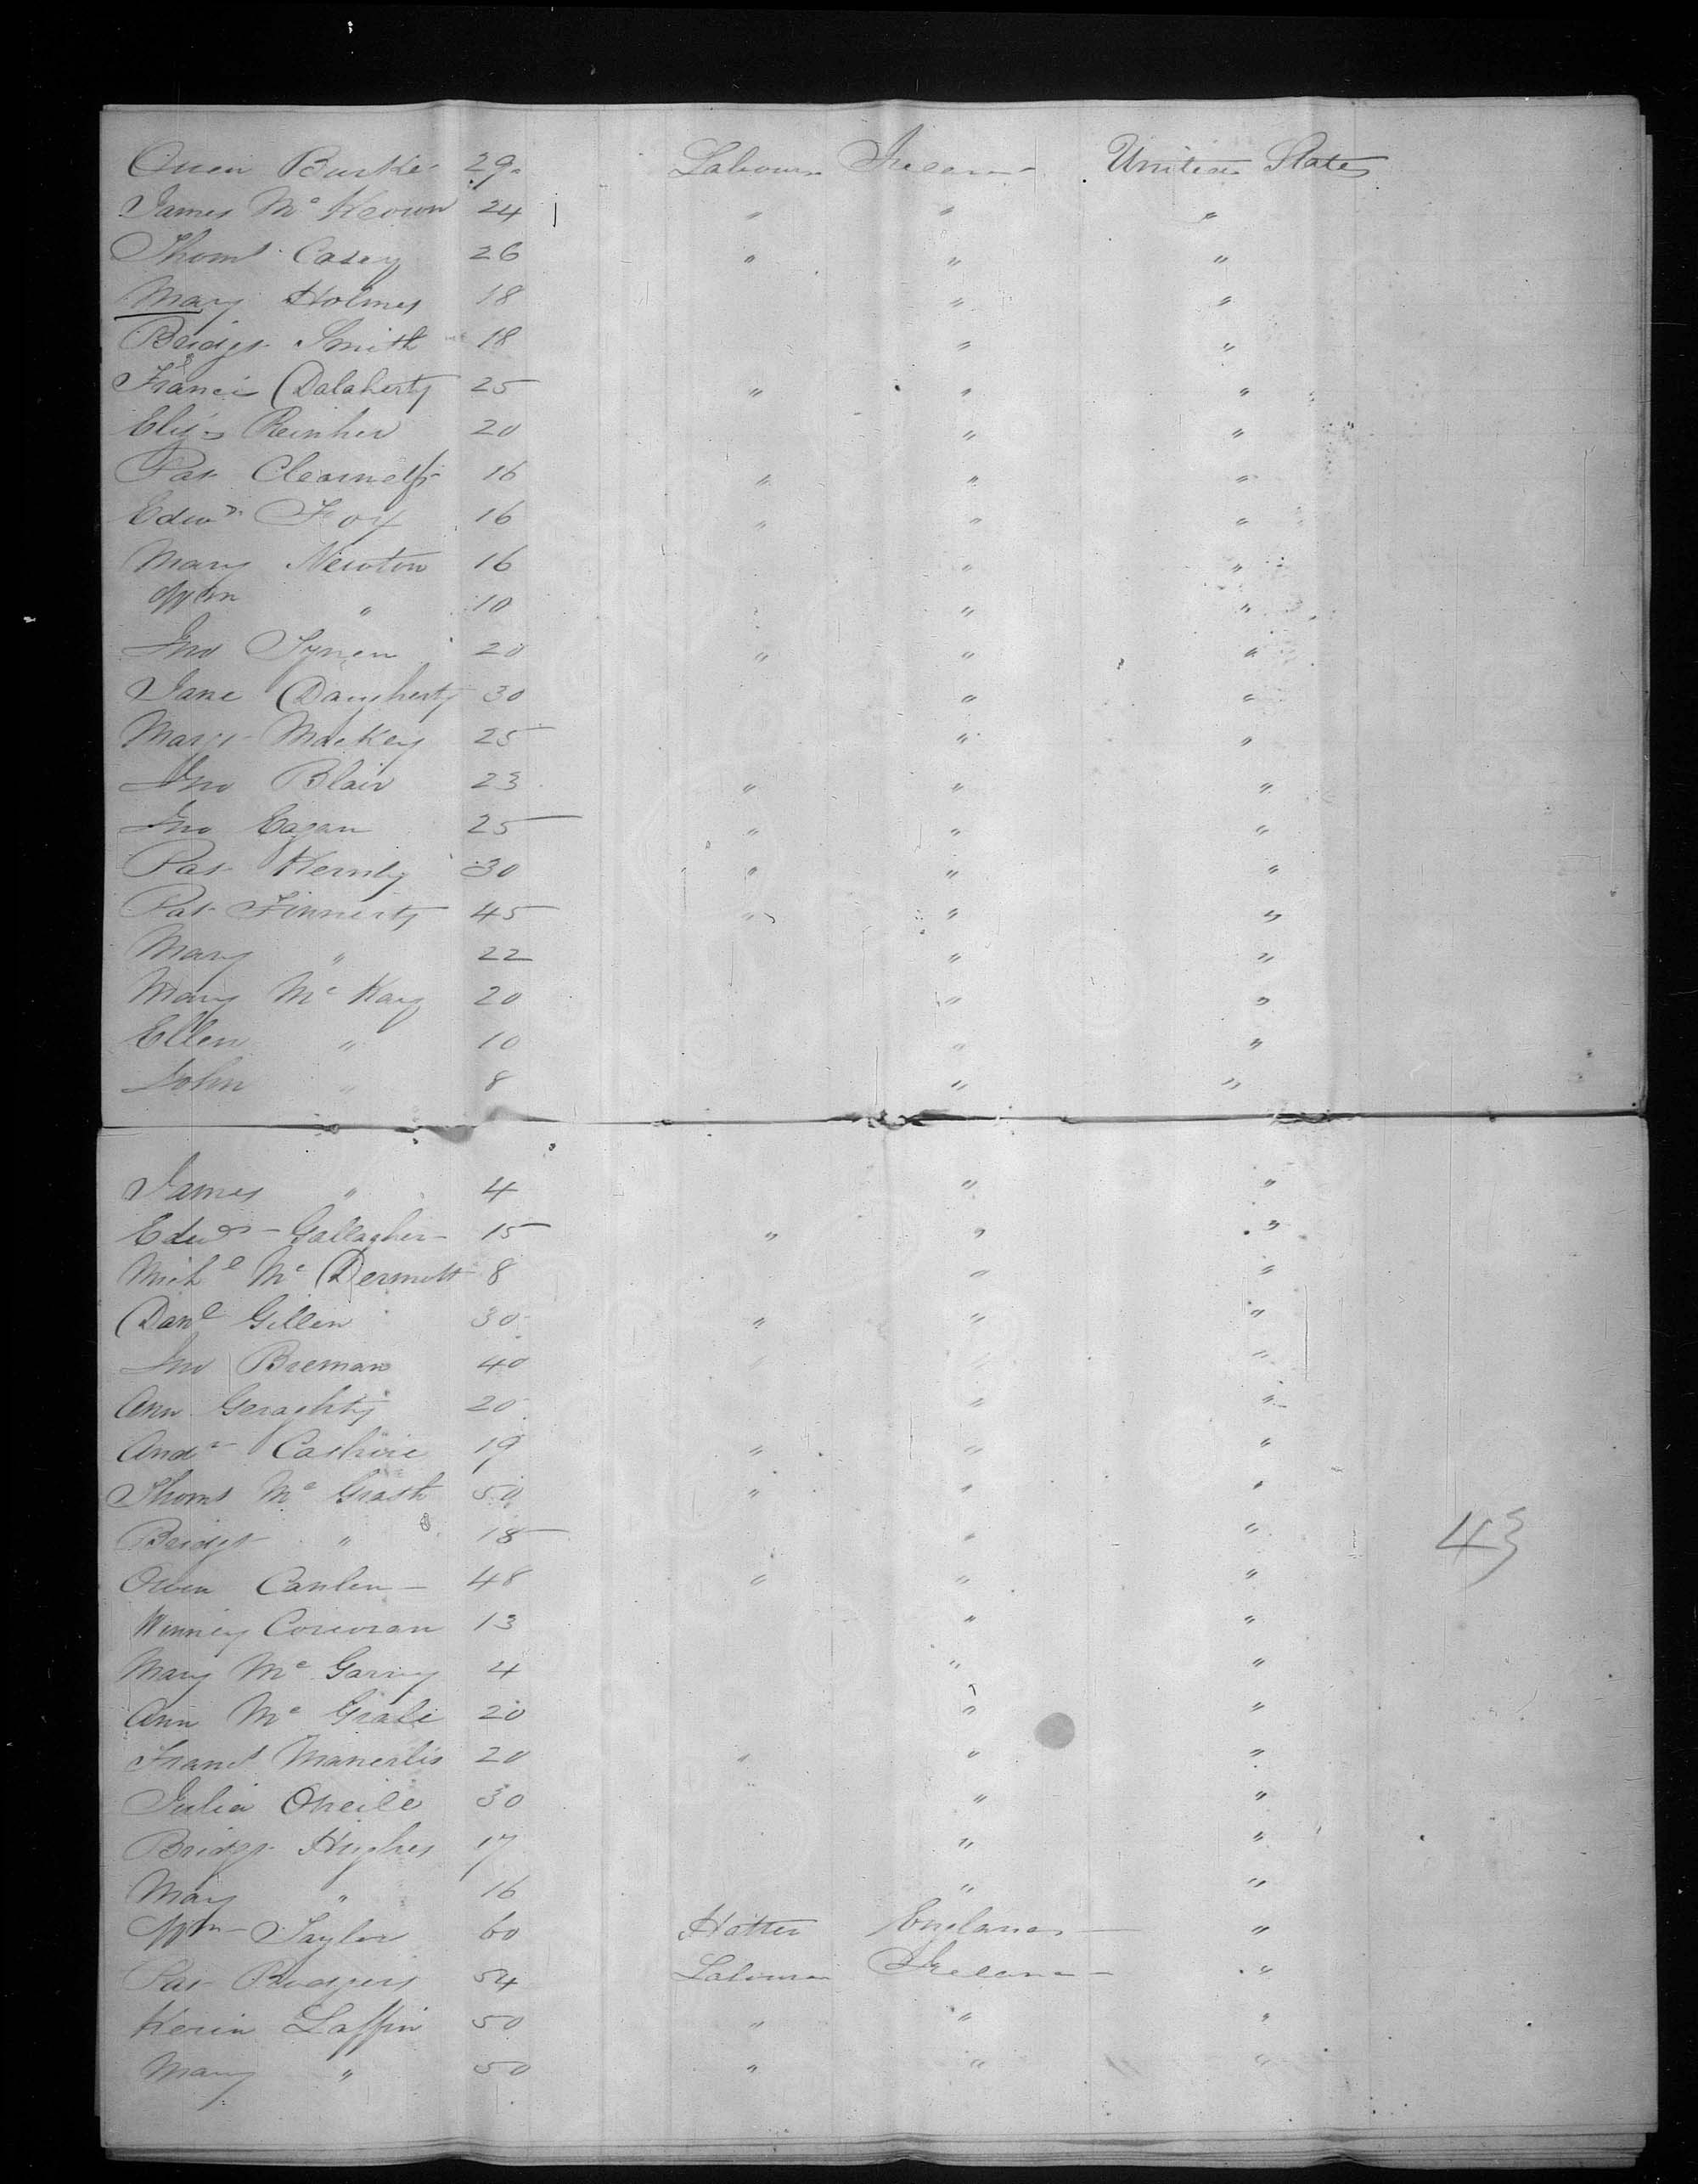 Owen Burke 29 Labourer Ireland United States
James Mc Keown 24 " " "
Thoms Casey 26 " " "
Mary Holmes 18 " "
Bridgt Smith 18 " "
Francis Dalaherty 25 " " "
Eliz 20 " "
Pat 16 " " "
Edwd Fox 16 " " "
Mary Newton 16 " "
Wm " 10 " "
Jno Tynen 20 " " "
Jane Daugherty 30 " "
Margt Mackey 25 " "
Jno Blair 23 " " "
Jno Eagan 25 " " "
Pat Kernly 30 " " "
Pat Finnerty 45 " " "
Mary " 22 " "
Mary Mc Kay 20 " "
Ellen " 10 " "
John " 8 " "
James " 4 " "
Edwd Gallagher 15 " " "
Michl Mc Dermott 8 " "
Danl Gillen 30 " " "
Jno Breman 40 " " "
Ann Geraghty 20 " "
Andw 19 " " "
Thoms Mc Grath 50 " " "
Bridgt " 18 " "
Owen Canlen 48 " " "
Winney Corcoran 13 " "
Mary Mc Garvey 4 " "
Ann Mc 20 " "
Frans 20 " " "
Julia Oneile 30 " "
Bridgt Hughes 17 " "
Mary " 16 " "
Wm Taylor 60 Hatter England "
Pat Rodgers 54 Labourer Ireland "
Kerin Laffin 50 " " "
Mary " 50 " " "
43